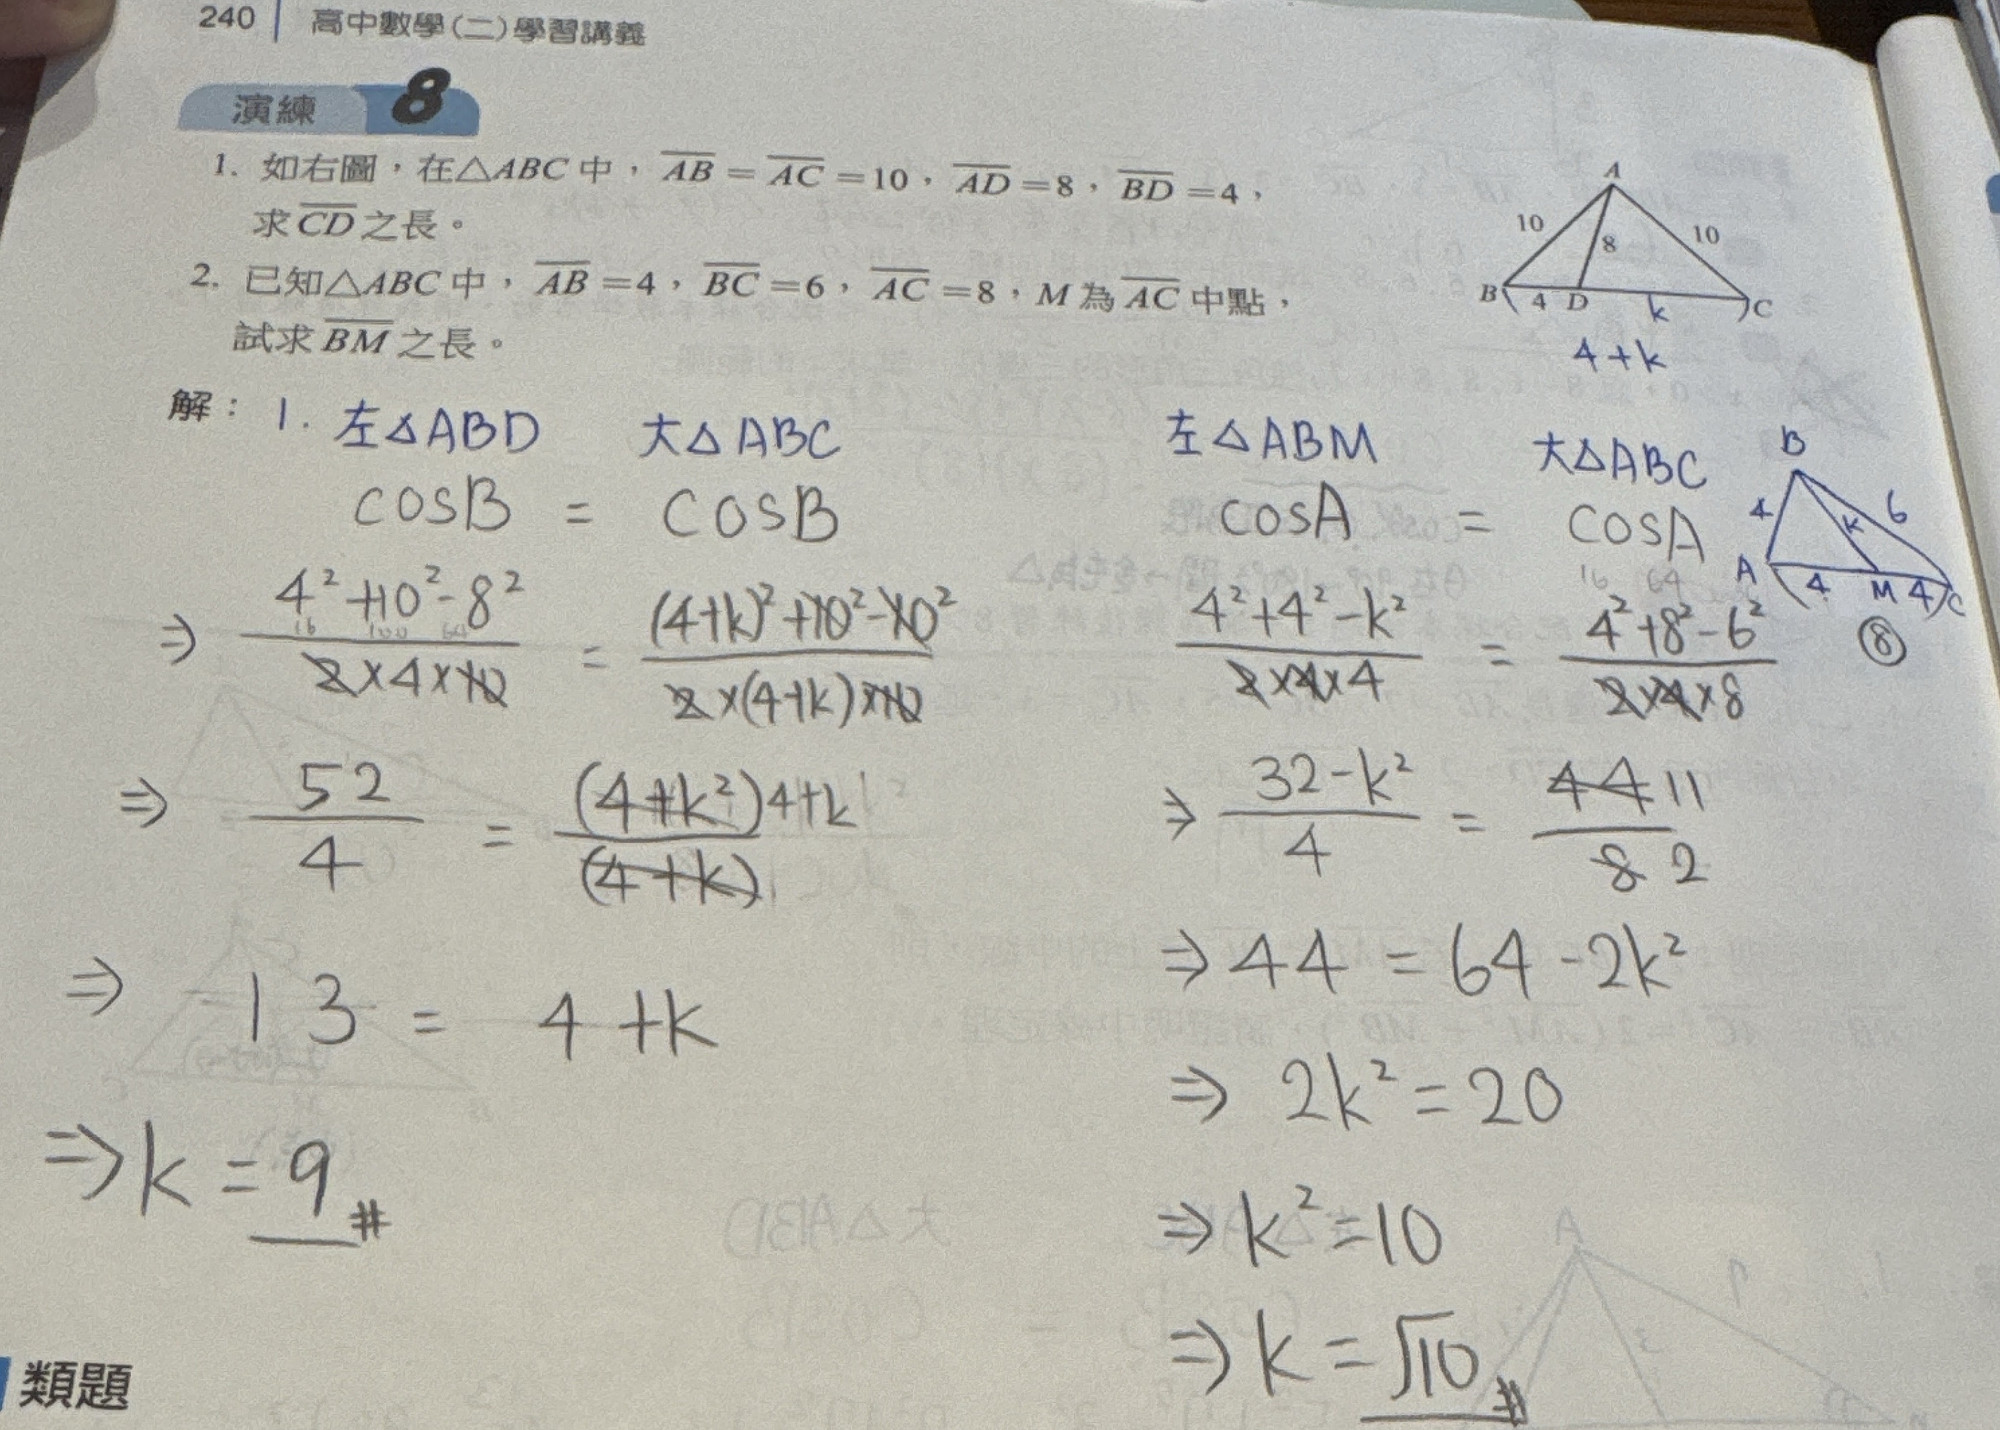 240 | 高中數學(二)學習講義
演練 8
1. 如右圖，在△ABC中，AB = AC =10，AD =8，BD =4，
求CD之長。
2. 已知△ABC中，AB =4，BC =6，AC =8，M為AC中點，
試求BM之長。
A
10
8
10
B
4
D
k
C
4+k
解：1. 左△ABD 大△ABC
cosB = cosB
⇒ (4²+10²-8²)/(2×4×10) = ((4+k)²+10²-10²)/(2×(4+k)×10)
16 100 64
⇒ 52/4 = (4+k²)4+k/(4+k)
⇒ 13 = 4+k
⇒ k = 9 #
左△ABM 大△ABC
cosA = cosA
16 64
(4²+4²-k²)/(2×4×4) = (4²+8²-6²)/(2×4×8)
⇒ (32-k²)/4 = 44 11/8 2
⇒ 44 = 64-2k²
⇒ 2k² = 20
⇒ k² = 10
⇒ k = √10 #
B
4
k
6
A
4
M
4
C
⑧
類題